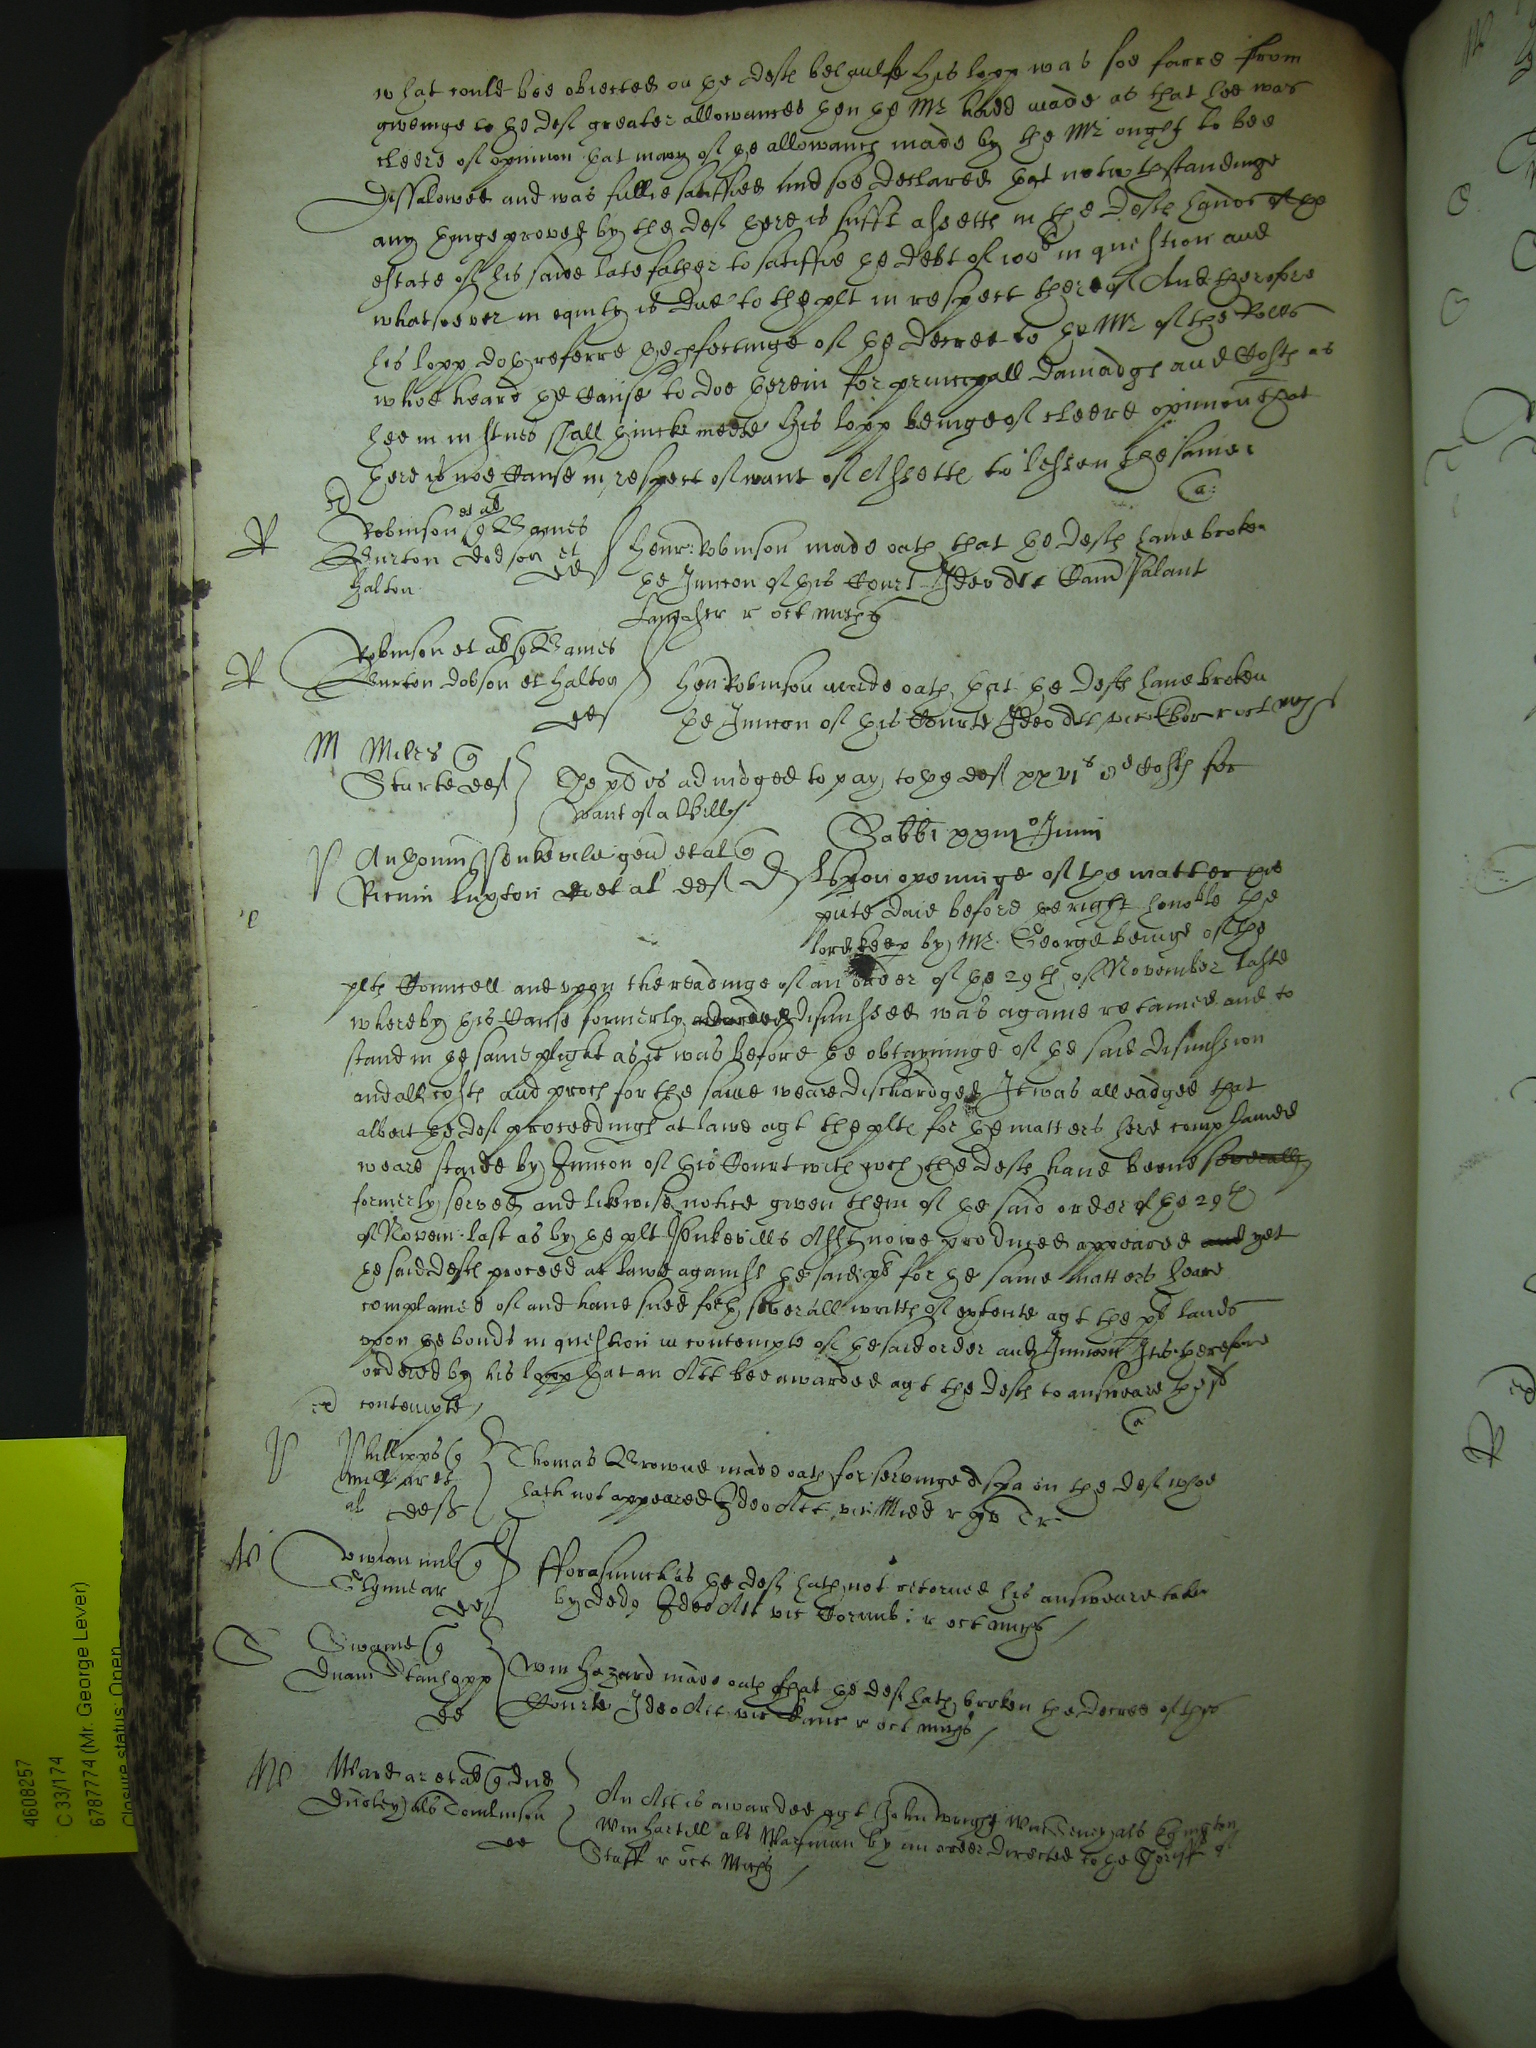 what could bee obiected on ye defts behaulfe his lopp was soe farre from
giveinge to ye deft greater allowances then ye Mr hadd made as that hee was
cleere of opinion that many of ye allowancs made by the Mr ought to bee
dissalowed and was fullie satisfied and soe declared that notwthstandinge
any thinge proved by the deft there is sufft assetts in the defts hands of the
estate of his saide late father to satisfie ye debt of 100li in question and
whatsoever in equity is due to the plt in respect thereof And therefore
his lopp doth referre ye pfectinge of ye decree to ye Mr of the Rolls
whoe heard ye Cause to doe therein for principall damadgs and Costs as
hee in iustnes shall thincke meete his lopp beinge of cleere opinion that
there is noe Cause in respect of want of Assetts to lessen the same
Robinson et al q Baynes
Burton Dodson et
Halton def
Henr: Robinson made oath that ye defts have broken
ye Iniuncon of this Court Ideo Att Cam Palant
Lancaster r oct michis
R Robinson et al q Baines
Burton Dobson et Halton
def
Hen: Robinson made oath that ye defts have broken
ye Iniuncon of this Courte Ideo Att vic Ebor r oct michis
M Miles q
Sturte def
The plt is adiudged to pay to ye deft xxvis Costs for
want of a Bill
Sabbi xxiiio Junii
P Anthonius Penkevile gen et al q
Ricum Luxton et al def
Upon openinge of the matter this
pnte daie before ye right honoble the
lord keep by Mr George beinge of the
plts Councell and upon the readinge of an order of ye 29th of November laste
whereby this Cause formerly dismissed was againe retained and to
stand in ye same plight as it was before ye obtayninge of ye said dismission
and all costs and proces for the same weare dischardged It was alleadged that
albeit ye deft proceedings at lawe agt the plts for ye matters here complained
weare staied by Iniuncon of this Court with wch the defts have beene severally
formerly served and likewise notice given them of ye said order of ye 29th
of Novem: last as by ye plt Penkevills Afft nowe produced appeared and yet
ye said defts proceed at lawe against ye said plt for ye same matters heare
complained of and have sued forth severall writts of extente agt the plts lands
upon ye bonds in question in contempte of ye said order and Iniuncon It is therefore
ordered by his lopp that an Att bee awarded agt the defts to answeare the sd
contempte
P Phillipps q
ar et
al defts
Thomas Browne made oath for servinge a spa on the deft whoe
hath not appeared Ideo Att vic Midd r Tr
Vivian mil q
ar
def
fforasmuch as ye deft hath not retorned his answeare taken
by dedi Ideo Att vic Cornub: r oct michis
S Swaine q
Dnam Stanhopp
def
Wm Hazard made oath that ye deft hath broken the decree of this
Courte Ideo Att vic r oct michis
W Ward ar et al q dnd
Dudley als Tomlinson
def
An Att is awarded agt John Wrigg Wm als
Wm Hartill als Warman by an order directed to the Sheriff of
Staff r oct Michis
4608257
C 33/174
6787774 (Mr. George Lever)
Closure status: Open